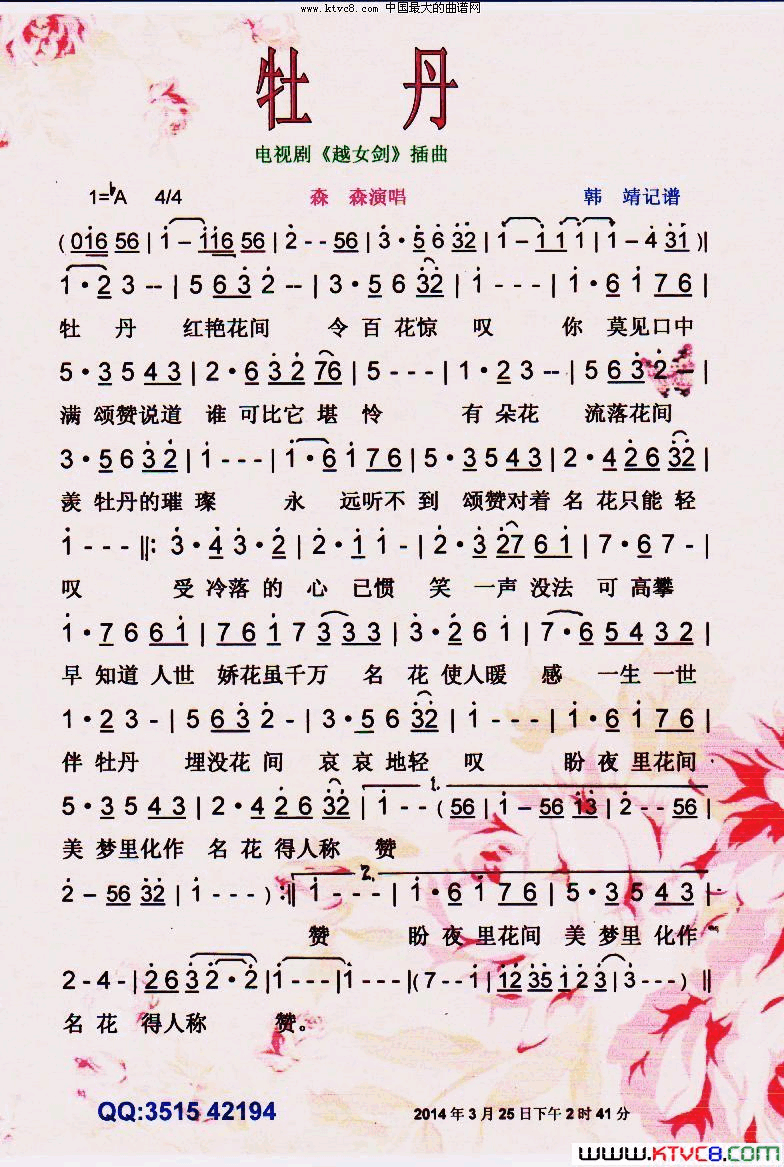 www.ktvc8.com 中国最大的曲谱网
牡 丹
电视剧《越女剑》插曲
1=♭A 4/4 森 森演唱 韩 靖记谱
(016 56 | 1 – 116 56 | 2 - - 56 | 3 · 5 6 32 | 1 – 1 1 1 | 1 – 4 31 )‖
1 · 2 3 -- | 5 6 3 2 -- | 3 · 5 6 32 | 1 - - - | 1 · 6 1 7 6 |
牡 丹 红艳花间 令 百 花惊 叹 你 莫见口中
5 · 3 5 4 3 | 2 · 6 3 2 76 | 5 - - - | 1 · 2 3 -- | 5 6 3 2 – |
满 颂赞说道 谁 可比它 堪 怜 有 朵花 流落花间
3 · 5 6 3 2 | 1 - - - | 1 · 6 1 7 6 | 5 · 3 5 4 3 | 2 · 4 2 6 32 |
羡 牡丹的璀 璨 永 远听不 到 颂赞对着 名 花只能 轻
1 - - - ‖: 3 · 4 3 · 2 | 2 · 1 1 - | 2 · 3 27 6 1 | 7 · 6 7 - |
叹 受 冷落 的 心 已惯 笑 一声 没法 可 高攀
1 · 7 6 6 1 | 7 6 1 7 3 3 3 | 3 · 2 6 1 | 7 · 6 5 4 3 2 |
早 知道 人世 娇花虽千万 名 花 使人暖 感 一生 一世
1 · 2 3 - | 5 6 3 2 - | 3 · 5 6 32 | 1 - - - | 1 · 6 1 7 6 |
伴 牡丹 埋没花 间 哀 哀 地轻 叹 盼 夜 里花间
1.
5 · 3 5 4 3 | 2 · 4 2 6 32 | 1 - - ( 56 | 1 – 56 13 | 2 - - 56 |
美 梦里化作 名 花 得人称 赞
2.
2 – 56 32 | 1 - - ) :‖ 1 - - - | 1 · 6 1 7 6 | 5 · 3 5 4 3 |
赞 盼 夜 里花间 美 梦里 化作
2 - 4 - | 2 6 3 2 · 2 | 1 - - - | 1 - - - |( 7 - - 1 | 12 35 1 2 3 | 3 - - - ) ‖
名 花 得人称 赞。
QQ:3515 42194
2014 年 3 月 25 日下午 2 时 41 分
www.KTVC8.com